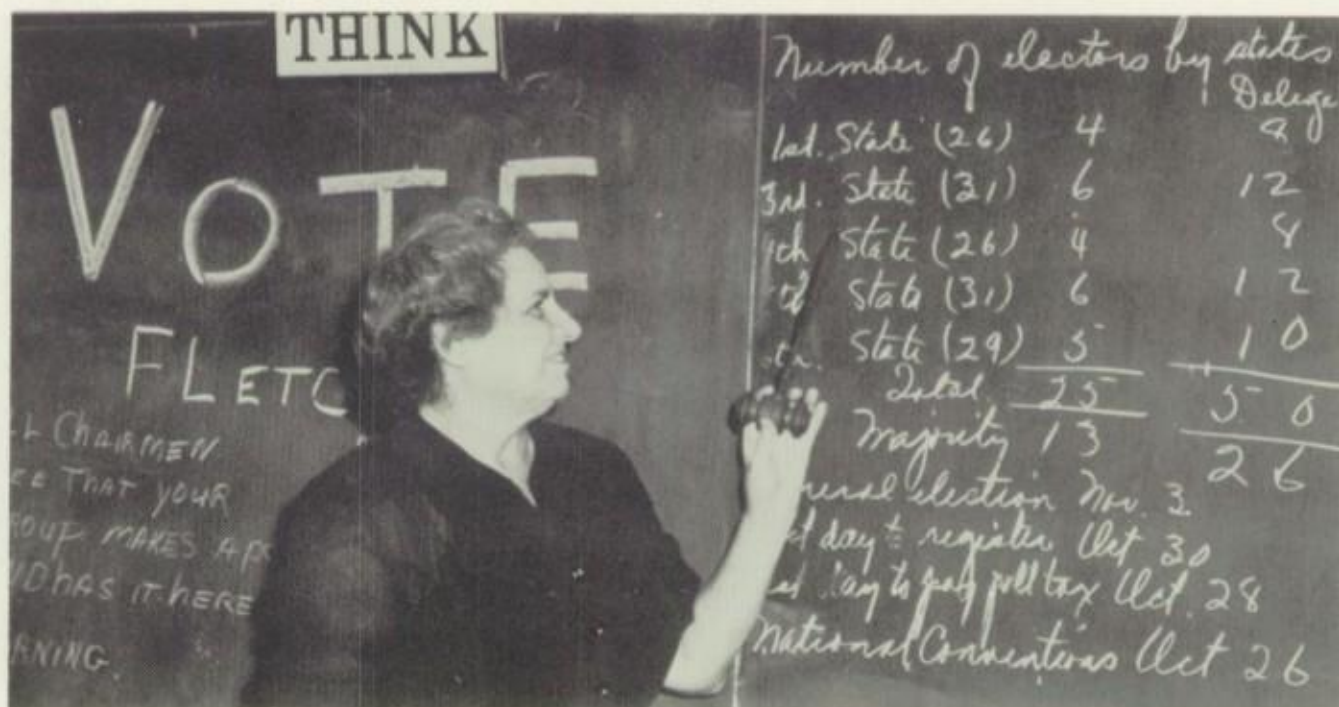 THINK
VOTE
FLETC
LL CHAIRMEN
EE THAT YOUR
ROUP MAKES A
HAS IT HERE
RNING
Number of electors by states
Delega
1st. State (26) 4 8
3rd. State (31) 6 12
State (26) 4 8
State (31) 6 12
State (29) 5 10
Total 25 50
Majority 13 26
neral election Nov. 3
st day to register Oct 30
day to pay poll tax Oct. 28
National Conventions Oct 26